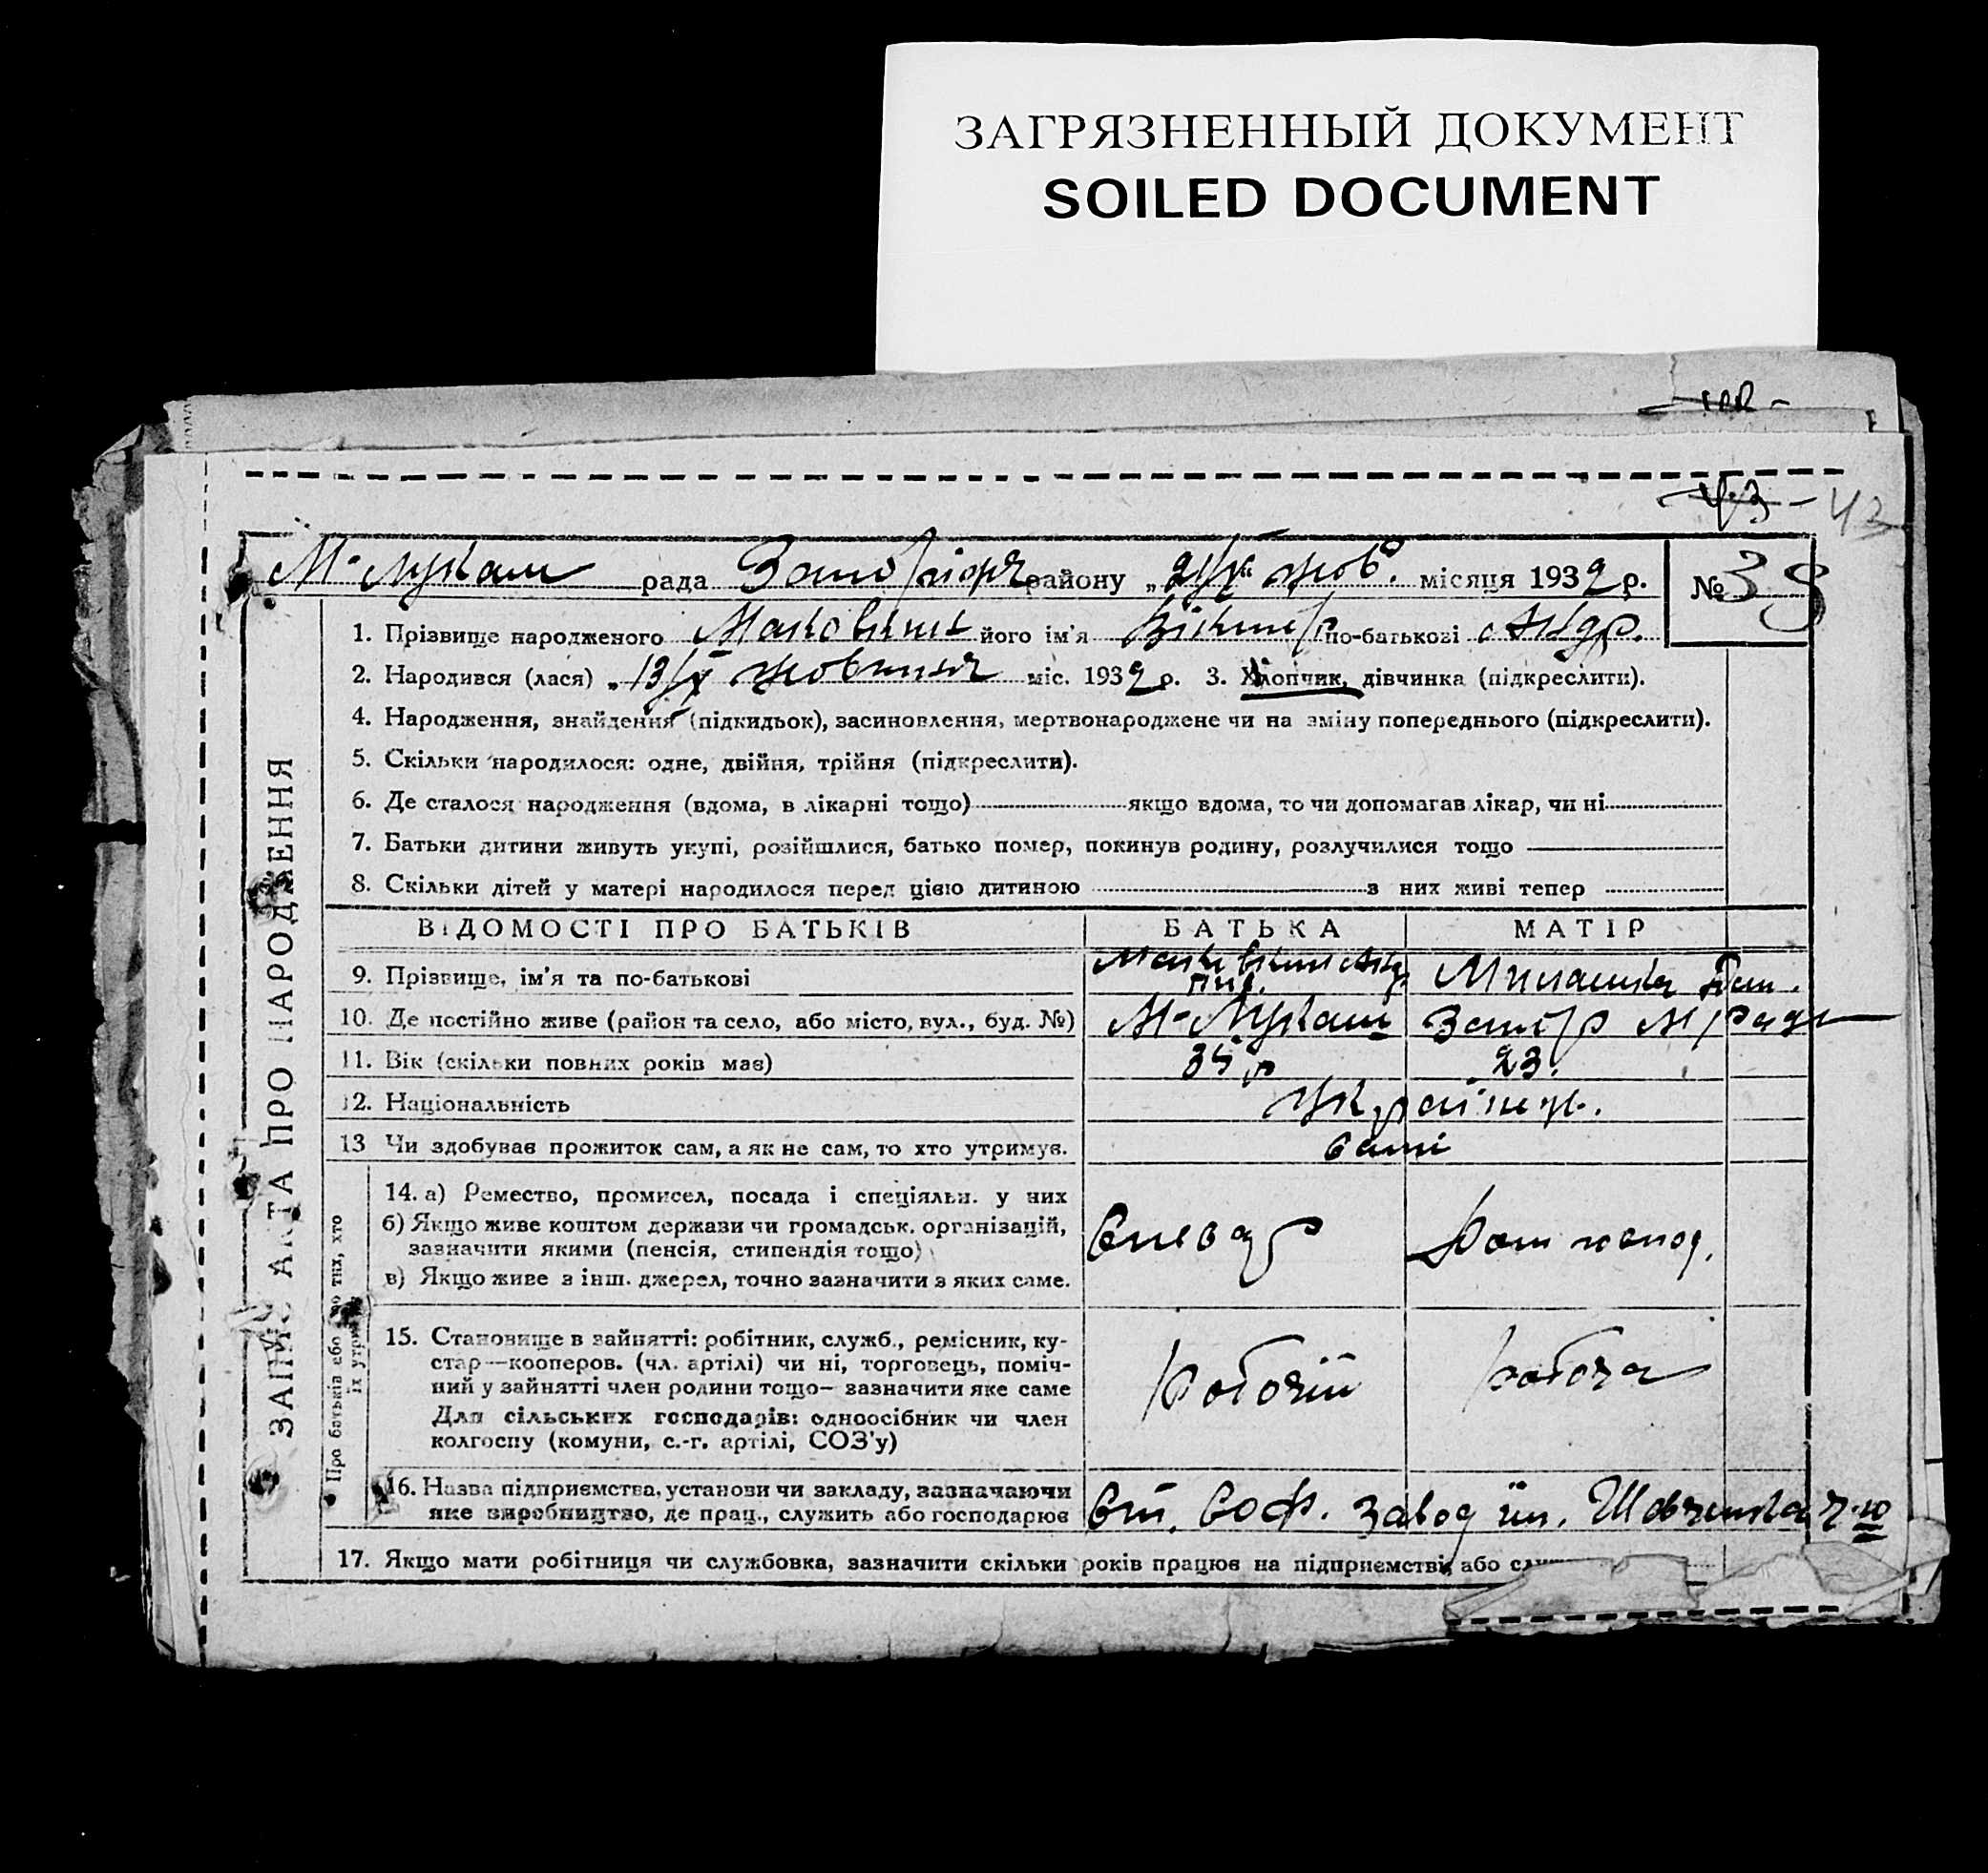 ЗАГРЯЗНЕННЫЙ ДОКУМЕНТ
SOILED DOCUMENT
43
рада району „21/X“ жов. місяця 1932 р. № 38
1. Прізвище народженого його ім'я Віктор по-батькові Андр.
2. Народився (лася) „13/X жовтня міс. 1932 р. 3. Хлопчик, дівчинка (підкреслити).
4. Народження, знайдення (підкидьок), засиновлення, мертвонароджене чи на зміну попереднього (підкреслити).
5. Скільки народилося: одне, двійня, трійня (підкреслити).
6. Де сталося народження (вдома, в лікарні тощо) якщо вдома, то чи допомагав лікар, чи ні
7. Батьки дитини живуть укупі, розійшлися, батько помер, покинув родину, розлучилися тощо
8. Скільки дітей у матері народилося перед цією дитиною з них живі тепер
ЗАПИС АКТА ПРО НАРОДЖЕННЯ
ВІДОМОСТІ ПРО БАТЬКІВ БАТЬКА МАТІР
9. Прізвище, ім'я та по-батькові
10. Де постійно живе (район та село, або місто, вул., буд. №)
11. Вік (скільки повних років має) 35 р 23.
12. Національність Україн.
13 Чи здобуває прожиток сам, а як не сам, то хто утримує. сами
Про батьків або про тих, хто їх утримує
14. а) Ремество, промисел, посада і спеціяльн. у них
б) Якщо живе коштом держави чи громадськ. організацій,
зазначити якими (пенсія, стипендія тощо)
в) Якщо живе з інш. джерел, точно зазначити з яких саме.
Слюсар Дом господ.
15. Становище в зайнятті: робітник, служб., ремісник, ку-
стар—кооперов. (чл. артілі) чи ні, торговець, поміч-
ний у зайнятті член родини тощо— зазначити яке саме
Для сільських господарів: одноосібник чи член
колгоспу (комуни, с.-г. артілі, СОЗ'у)
Робочій робоча
16. Назва підприємства, установи чи закладу, зазначаючи
яке виробництво, де прац., служить або господарює
Ст. Соф. завод ім. Шевченка
17. Якщо мати робітниця чи службовка, зазначити скільки років працює на підприємстві, або